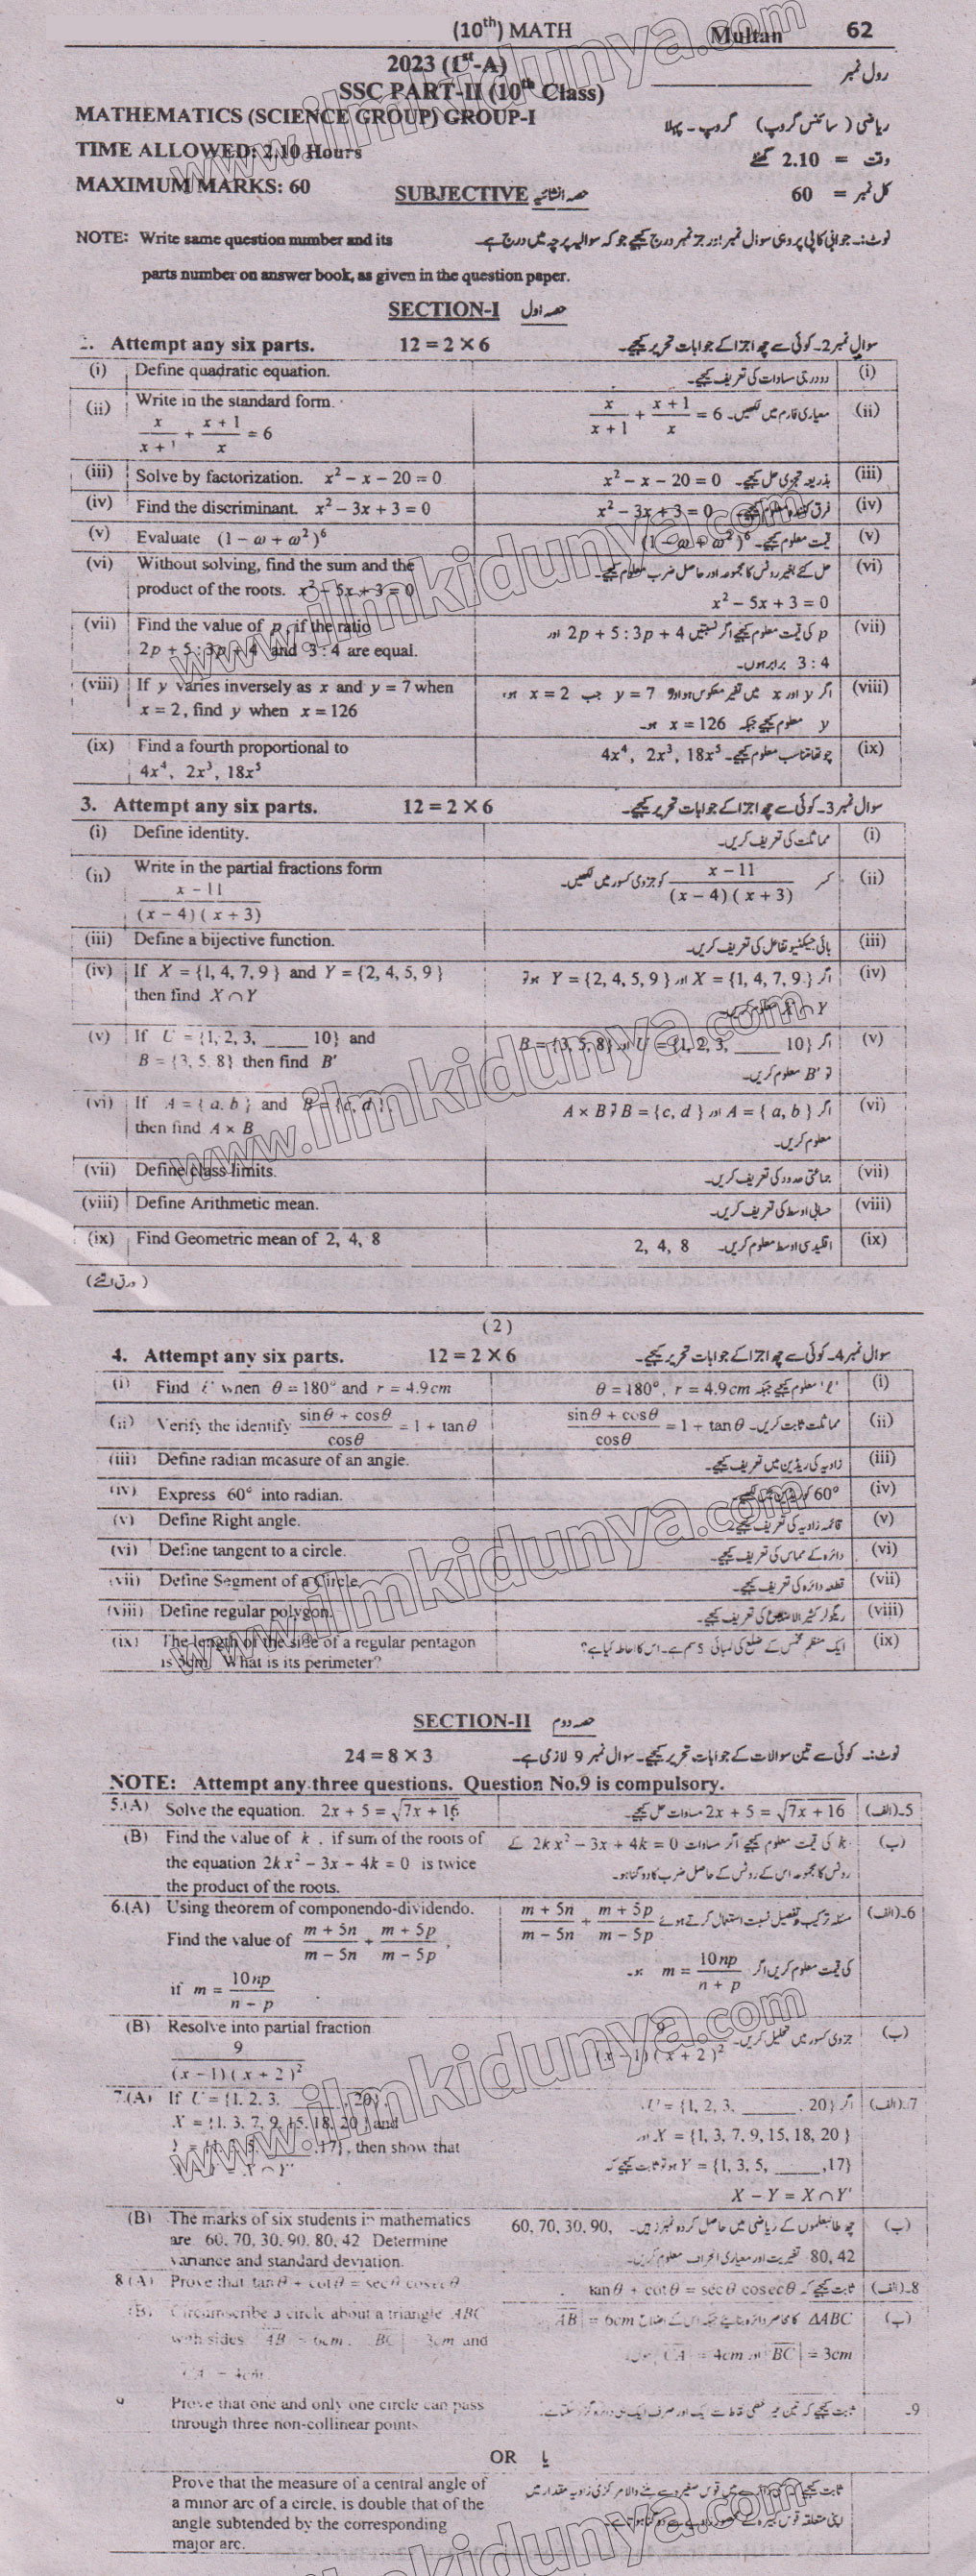 (10th) MATH Multan 62
2023 (1st-A)
SSC PART-II (10th Class) رول نمبر
MATHEMATICS (SCIENCE GROUP) GROUP-I ریاضی (سائنس گروپ) گروپ ۔ پہلا
TIME ALLOWED: 2.10 Hours وقت = 2.10 گھنٹے
MAXIMUM MARKS: 60 SUBJECTIVE حصہ انشائیہ کل نمبر = 60
NOTE: Write same question number and its نوٹ:۔ جوابی کاپی پر وہی سوال نمبر اور جز نمبر درج کیجیے جو کہ سوالیہ پرچہ میں درج ہے۔
parts number on answer book, as given in the question paper.
SECTION-I حصہ اول
2. Attempt any six parts. 12 = 2 × 6 سوال نمبر 2۔ کوئی سے چھ اجزا کے جوابات تحریر کیجیے۔
(i) Define quadratic equation. دو درجی مساوات کی تعریف کیجیے۔ (i)
(ii) Write in the standard form. x/(x+1) + (x+1)/x = 6 معیاری فارم میں لکھیں۔ x/(x+1) + (x+1)/x = 6 (ii)
(iii) Solve by factorization. x² − x − 20 = 0 بذریعہ تجزی حل کیجیے۔ x² − x − 20 = 0 (iii)
(iv) Find the discriminant. x² − 3x + 3 = 0 فرق کنندہ معلوم کیجیے۔ x² − 3x + 3 = 0 (iv)
(v) Evaluate (1 − ω + ω²)⁶ قیمت معلوم کیجیے۔ (1 − ω + ω²)⁶ (v)
(vi) Without solving, find the sum and the حل کئے بغیر روٹس کا مجموعہ اور حاصل ضرب معلوم کیجیے۔ (vi)
product of the roots. x² − 5x + 3 = 0 x² − 5x + 3 = 0
(vii) Find the value of p, if the ratio p کی قیمت معلوم کیجیے اگر نسبتیں 2p + 5 : 3p + 4 اور (vii)
2p + 5 : 3p + 4 and 3 : 4 are equal. 3 : 4 برابر ہوں۔
(viii) If y varies inversely as x and y = 7 when اگر y اور x میں تغیر معکوس ہو اور y = 7 جب x = 2 ہو، (viii)
x = 2, find y when x = 126 y معلوم کیجیے جبکہ x = 126 ہو۔
(ix) Find a fourth proportional to چوتھا تناسب معلوم کیجیے۔ 4x⁴, 2x³, 18x⁵ (ix)
4x⁴, 2x³, 18x⁵
3. Attempt any six parts. 12 = 2 × 6 سوال نمبر 3۔ کوئی سے چھ اجزا کے جوابات تحریر کیجیے۔
(i) Define identity. مماثلت کی تعریف کریں۔ (i)
(ii) Write in the partial fractions form (x − 11)/((x − 4)(x + 3)) کسر (x − 11)/((x − 4)(x + 3)) کو جزوی کسور میں لکھیں۔ (ii)
(iii) Define a bijective function. بائی جیکٹیو تفاعل کی تعریف کریں۔ (iii)
(iv) If X = {1, 4, 7, 9} and Y = {2, 4, 5, 9} اگر X = {1, 4, 7, 9} اور Y = {2, 4, 5, 9} ہو تو (iv)
then find X ∩ Y X ∩ Y معلوم کریں۔
(v) If U = {1, 2, 3, ____ 10} and اگر U = {1, 2, 3, ____ 10} اور B = {3, 5, 8} (v)
B = {3, 5, 8} then find B′ تو B′ معلوم کریں۔
(vi) If A = {a, b} and B = {c, d} اگر A = {a, b} اور B = {c, d} تو A × B (vi)
then find A × B معلوم کریں۔
(vii) Define class limits. جماعتی حدود کی تعریف کریں۔ (vii)
(viii) Define Arithmetic mean. حسابی اوسط کی تعریف کریں۔ (viii)
(ix) Find Geometric mean of 2, 4, 8 اقلیدسی اوسط معلوم کریں۔ 2, 4, 8 (ix)
(ورق الٹئے)
(2)
4. Attempt any six parts. 12 = 2 × 6 سوال نمبر 4۔ کوئی سے چھ اجزا کے جوابات تحریر کیجیے۔
(i) Find 'ℓ' when θ = 180° and r = 4.9cm 'ℓ' معلوم کیجیے جبکہ θ = 180°, r = 4.9cm (i)
(ii) Verify the identify (sinθ + cosθ)/cosθ = 1 + tanθ مماثلت ثابت کریں۔ (sinθ + cosθ)/cosθ = 1 + tanθ (ii)
(iii) Define radian measure of an angle. زاویہ کی ریڈین میں تعریف کیجیے۔ (iii)
(iv) Express 60° into radian. 60° کو (iv)
(v) Define Right angle. قائمہ زاویہ کی تعریف کیجیے۔ (v)
(vi) Define tangent to a circle. دائرہ کے مماس کی تعریف کیجیے۔ (vi)
(vii) Define Segment of a Circle. قطعہ دائرہ کی تعریف کیجیے۔ (vii)
(viii) Define regular polygon. ریگولر کثیر الاضلاع کی تعریف کیجیے۔ (viii)
(ix) The length of the side of a regular pentagon ایک منظم مخمس کے ضلع کی لمبائی 5 سم ہے۔ اس کا احاطہ کیا ہے؟ (ix)
is 5cm. What is its perimeter?
SECTION-II حصہ دوم
24 = 8 × 3 نوٹ:۔ کوئی سے تین سوالات کے جوابات تحریر کیجیے۔ سوال نمبر 9 لازمی ہے۔
NOTE: Attempt any three questions. Question No.9 is compulsory.
5.(A) Solve the equation. 2x + 5 = √(7x + 16) 2x + 5 = √(7x + 16) مساوات حل کیجیے۔ 5۔(الف)
(B) Find the value of k, if sum of the roots of k کی قیمت معلوم کیجیے اگر مساوات 2kx² − 3x + 4k = 0 کے (ب)
the equation 2kx² − 3x + 4k = 0 is twice روٹس کا مجموعہ اس کے روٹس کے حاصل ضرب کا دوگنا ہو۔
the product of the roots.
6.(A) Using theorem of componendo-dividendo. مسئلہ ترکیب و تفصیل نسبت استعمال کرتے ہوئے (m + 5n)/(m − 5n) + (m + 5p)/(m − 5p) 6۔(الف)
Find the value of (m + 5n)/(m − 5n) + (m + 5p)/(m − 5p),
if m = 10np/(n + p) کی قیمت معلوم کریں اگر m = 10np/(n + p) ہو۔
(B) Resolve into partial fraction جزوی کسور میں تحلیل کریں۔ 9/((x − 1)(x + 2)²) (ب)
9/((x − 1)(x + 2)²)
7.(A) If U = {1, 2, 3, ____, 20} اگر U = {1, 2, 3, ____, 20}، 7۔(الف)
X = {1, 3, 7, 9, 15, 18, 20} and X = {1, 3, 7, 9, 15, 18, 20} اور
Y = {1, 3, 5, ____, 17}, then show that Y = {1, 3, 5, ____,17} ہو تو ثابت کیجیے کہ
X − Y = X ∩ Y′ X − Y = X ∩ Y′
(B) The marks of six students in mathematics چھ طالبعلموں کے ریاضی میں حاصل کردہ نمبرز ہیں۔ 60, 70, 30, 90, (ب)
are 60, 70, 30, 90, 80, 42 Determine 80, 42 تغیریت اور معیاری انحراف معلوم کریں۔
variance and standard deviation.
8.(A) Prove that tanθ + cotθ = secθ cosecθ ثابت کیجیے کہ tanθ + cotθ = secθ cosecθ 8۔(الف)
(B) Circumscribe a circle about a triangle ABC ΔABC کا محاصر دائرہ بنائیے جبکہ اس کے اضلاع |AB| = 6cm (ب)
with sides |AB| = 6cm, |BC| = 3cm and |BC| = 3cm اور |CA| = 4cm ہوں۔
|CA| = 4cm
9 Prove that one and only one circle can pass ثابت کیجیے کہ تین غیر خطی نقاط سے ایک اور صرف ایک ہی دائرہ گزر سکتا ہے۔ 9۔
through three non-collinear points
OR یا
Prove that the measure of a central angle of قوس صغیرہ سے بننے والا مرکزی زاویہ مقدار میں
a minor arc of a circle, is double that of the اپنی متعلقہ قوس کبیرہ کے
angle subtended by the corresponding
major arc.
www.ilmkidunya.com
www.ilmkidunya.com
www.ilmkidunya.com
www.ilmkidunya.com
www.ilmkidunya.com
www.ilmkidunya.com